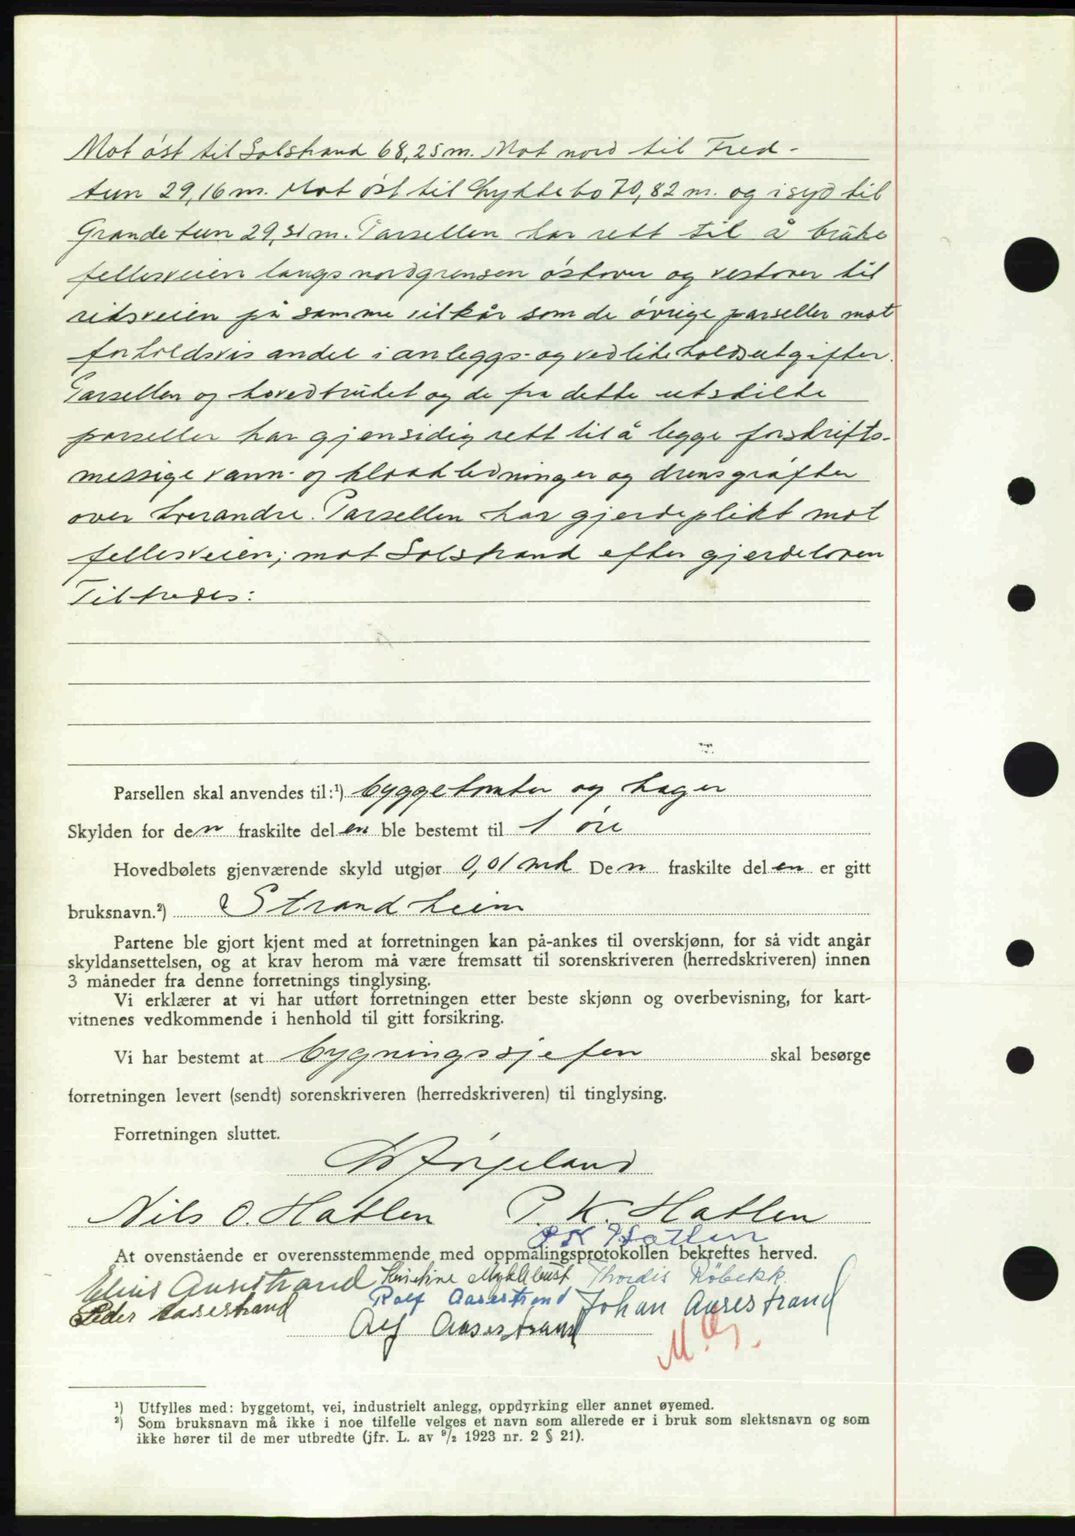 Mot øst til Solstrand 68,25 m. Mot nord til Fred-
tun 29,16 m. Mot øst til Lykkebo 70,82 m. og i syd til
Grande tun 29,31 m. Parsellen har rett til å bruke
fellesveien langs nordgrensen østover og vestover til
riksveien på samme vilkår som de øvrige parseller mot
forholdsvis andel i anleggs- og vedlikeholdsutgifter.
Parsellen og hovedbruket og de fra dette utskilte
parseller har gjensidig rett til å legge forskrifts-
messige vann- og kloakkledninger og drensgrøfter
over hverandre. Parsellen har gjerdeplikt mot
fellesveien; mot Solstrand efter gjerdeloven
Tiltredes:
Parsellen skal anvendes til:¹) byggetomter og hager
Skylden for den fraskilte delen ble bestemt til 1 øre
Hovedbølets gjenværende skyld utgjør 0,01 mrk Den fraskilte delen er gitt
bruksnavn.²) Strandheim
Partene ble gjort kjent med at forretningen kan på-ankes til overskjønn, for så vidt angår
skyldansettelsen, og at krav herom må være fremsatt til sorenskriveren (herredskriveren) innen
3 måneder fra denne forretnings tinglysing.
Vi erklærer at vi har utført forretningen etter beste skjønn og overbevisning, for kart-
vitnenes vedkommende i henhold til gitt forsikring.
Vi har bestemt at bygningssjefen skal besørge
forretningen levert (sendt) sorenskriveren (herredskriveren) til tinglysing.
Forretningen sluttet.
Nils O. Hatlen P. K. Hatlen
P K Hatlen
At ovenstående er overensstemmende med oppmålingsprotokollen bekreftes herved.
Elius Aursestrand Myklebust Thordis Røbekk
Peder Aarsestrand Rolf Aarsestrand Johan Aarsestrand
Alf Aarsestrand
¹) Utfylles med: byggetomt, vei, industrielt anlegg, oppdyrking eller annet øyemed.
²) Som bruksnavn må ikke i noe tilfelle velges et navn som allerede er i bruk som slektsnavn og som
ikke hører til de mer utbredte (jfr. L. av ⁹/₂ 1923 nr. 2 § 21).